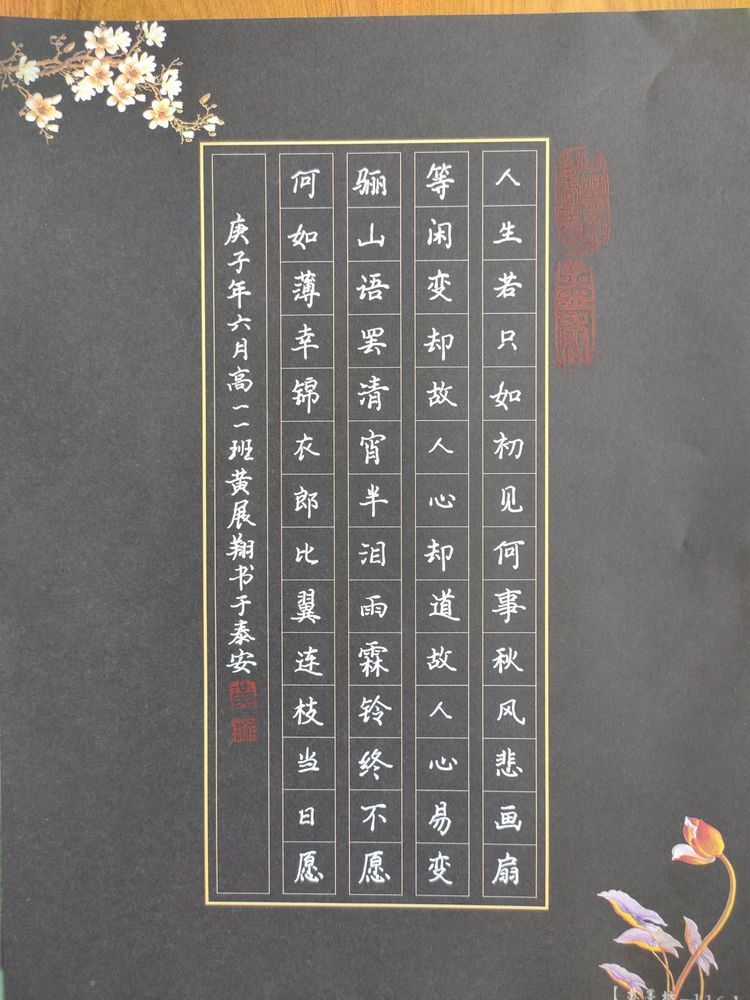 人生若只如初见何事秋风悲画扇
等闲变却故人心却道故人心易变
骊山语罢清宵半泪雨霖铃终不愿
何如薄幸锦衣郎比翼连枝当日愿
庚子年六月高一一班黄展翔书于泰安